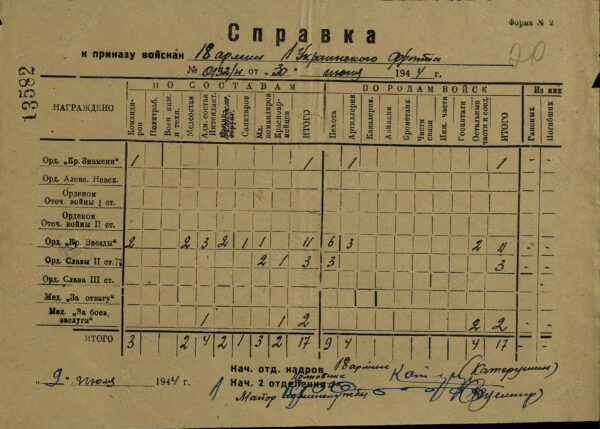 Справка
Форма № 2
к приказу войскам 18 армии 1 Украинского фронта
№ 0132/н от „30“ июня 1944 г.
20
13582
НАГРАЖДЕНО
ПО СОСТАВАМ
ПО РОДАМ ВОЙСК
Из них
Командиров
Политраб.
Воен. инж. и техн.
Медсостав
Адм. состав
Интендант.
Санитаров
Мл. командиров
Красноармейцев
ИТОГО
Пехота
Артиллерия
Кавалерия
Авиация
Бронетанк.
Части связи
Инж. части
Госпитали
Остальные части и соед.
ИТОГО
Раненых
Погибших
Орд. „Кр. Знамени“ 1 1 1 1 - -
Орд. Алекс. Невск.
Орденом
Отеч. войны I ст.
Орденом
Отеч. войны II ст.
Орд. „Кр. Звезды“ 2 2 3 2 1 1 11 6 3 2 11 - -
Орд. Славы II ст. 2 1 3 3 3 - -
Орд. Слава III ст.
Мед. „За отвагу“
Мед. „За боев. заслуги“ 1 1 2 2 2 - -
ИТОГО 3 2 4 2 1 3 2 17 9 4 4 17 - -
Нач. отд. кадров 18 армии
Полковник (Катерушин)
„2“ июля 1944 г.
1 Нач. 2 отделения
Майор адмслужбы